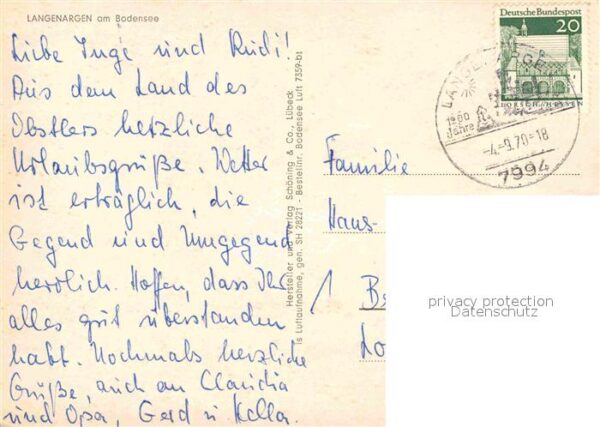 LANGENARGEN am Bodensee
Liebe Inge und Rudi!
Aus dem Land des
Obstlers herzliche
Urlaubsgrüße. Wetter
ist erträglich, die
Gegend und Umgegend
herrlich. Hoffen, dass Ihr
alles gut überstanden
habt. Nochmals herzliche
Grüße, auch an Claudia
und Opa, Gerd u
Hersteller und Verlag Schöning & Co., Lübeck
is Luftaufnahme, gen. SH 28221 - Bestellnr. Bodensee Luft 7359-bt
Deutsche Bundespost
20
LORSCH/HESSEN
1200
Jahre
-4.-9.70-18
7994
Familie
Hans-
privacy protection
Datenschutz